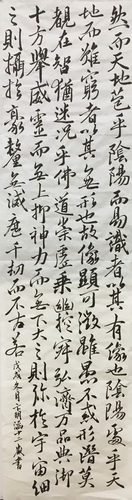 然而天地苞乎陰陽而易識者以其有像也陰陽處乎天
地而難窮者以其無形也故像顯可徵雖愚不惑形潛莫
覩在智猶迷況乎佛道崇虛乘幽控寂弘濟萬品典御
十方舉威靈而無上抑神力而無下大之則弥於宇宙細
之則攝於豪釐無滅歷千劫而不古若
戊戌九月 書